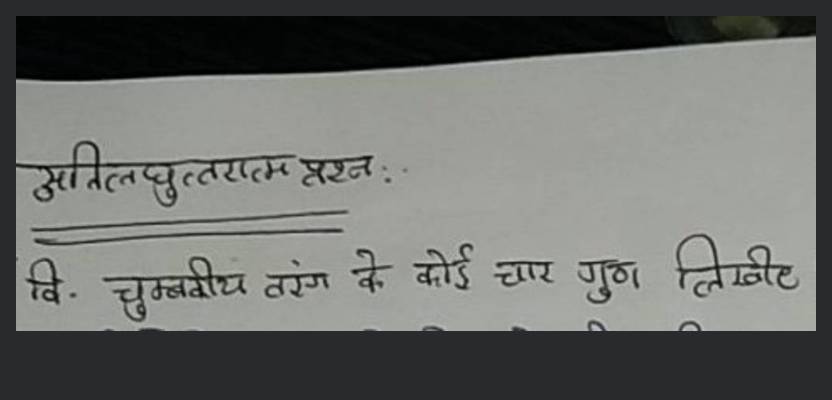 अतिलघुत्तरात्म प्रश्न:.
वि. चुम्बकीय तरंग के कोई चार गुण लिखीए